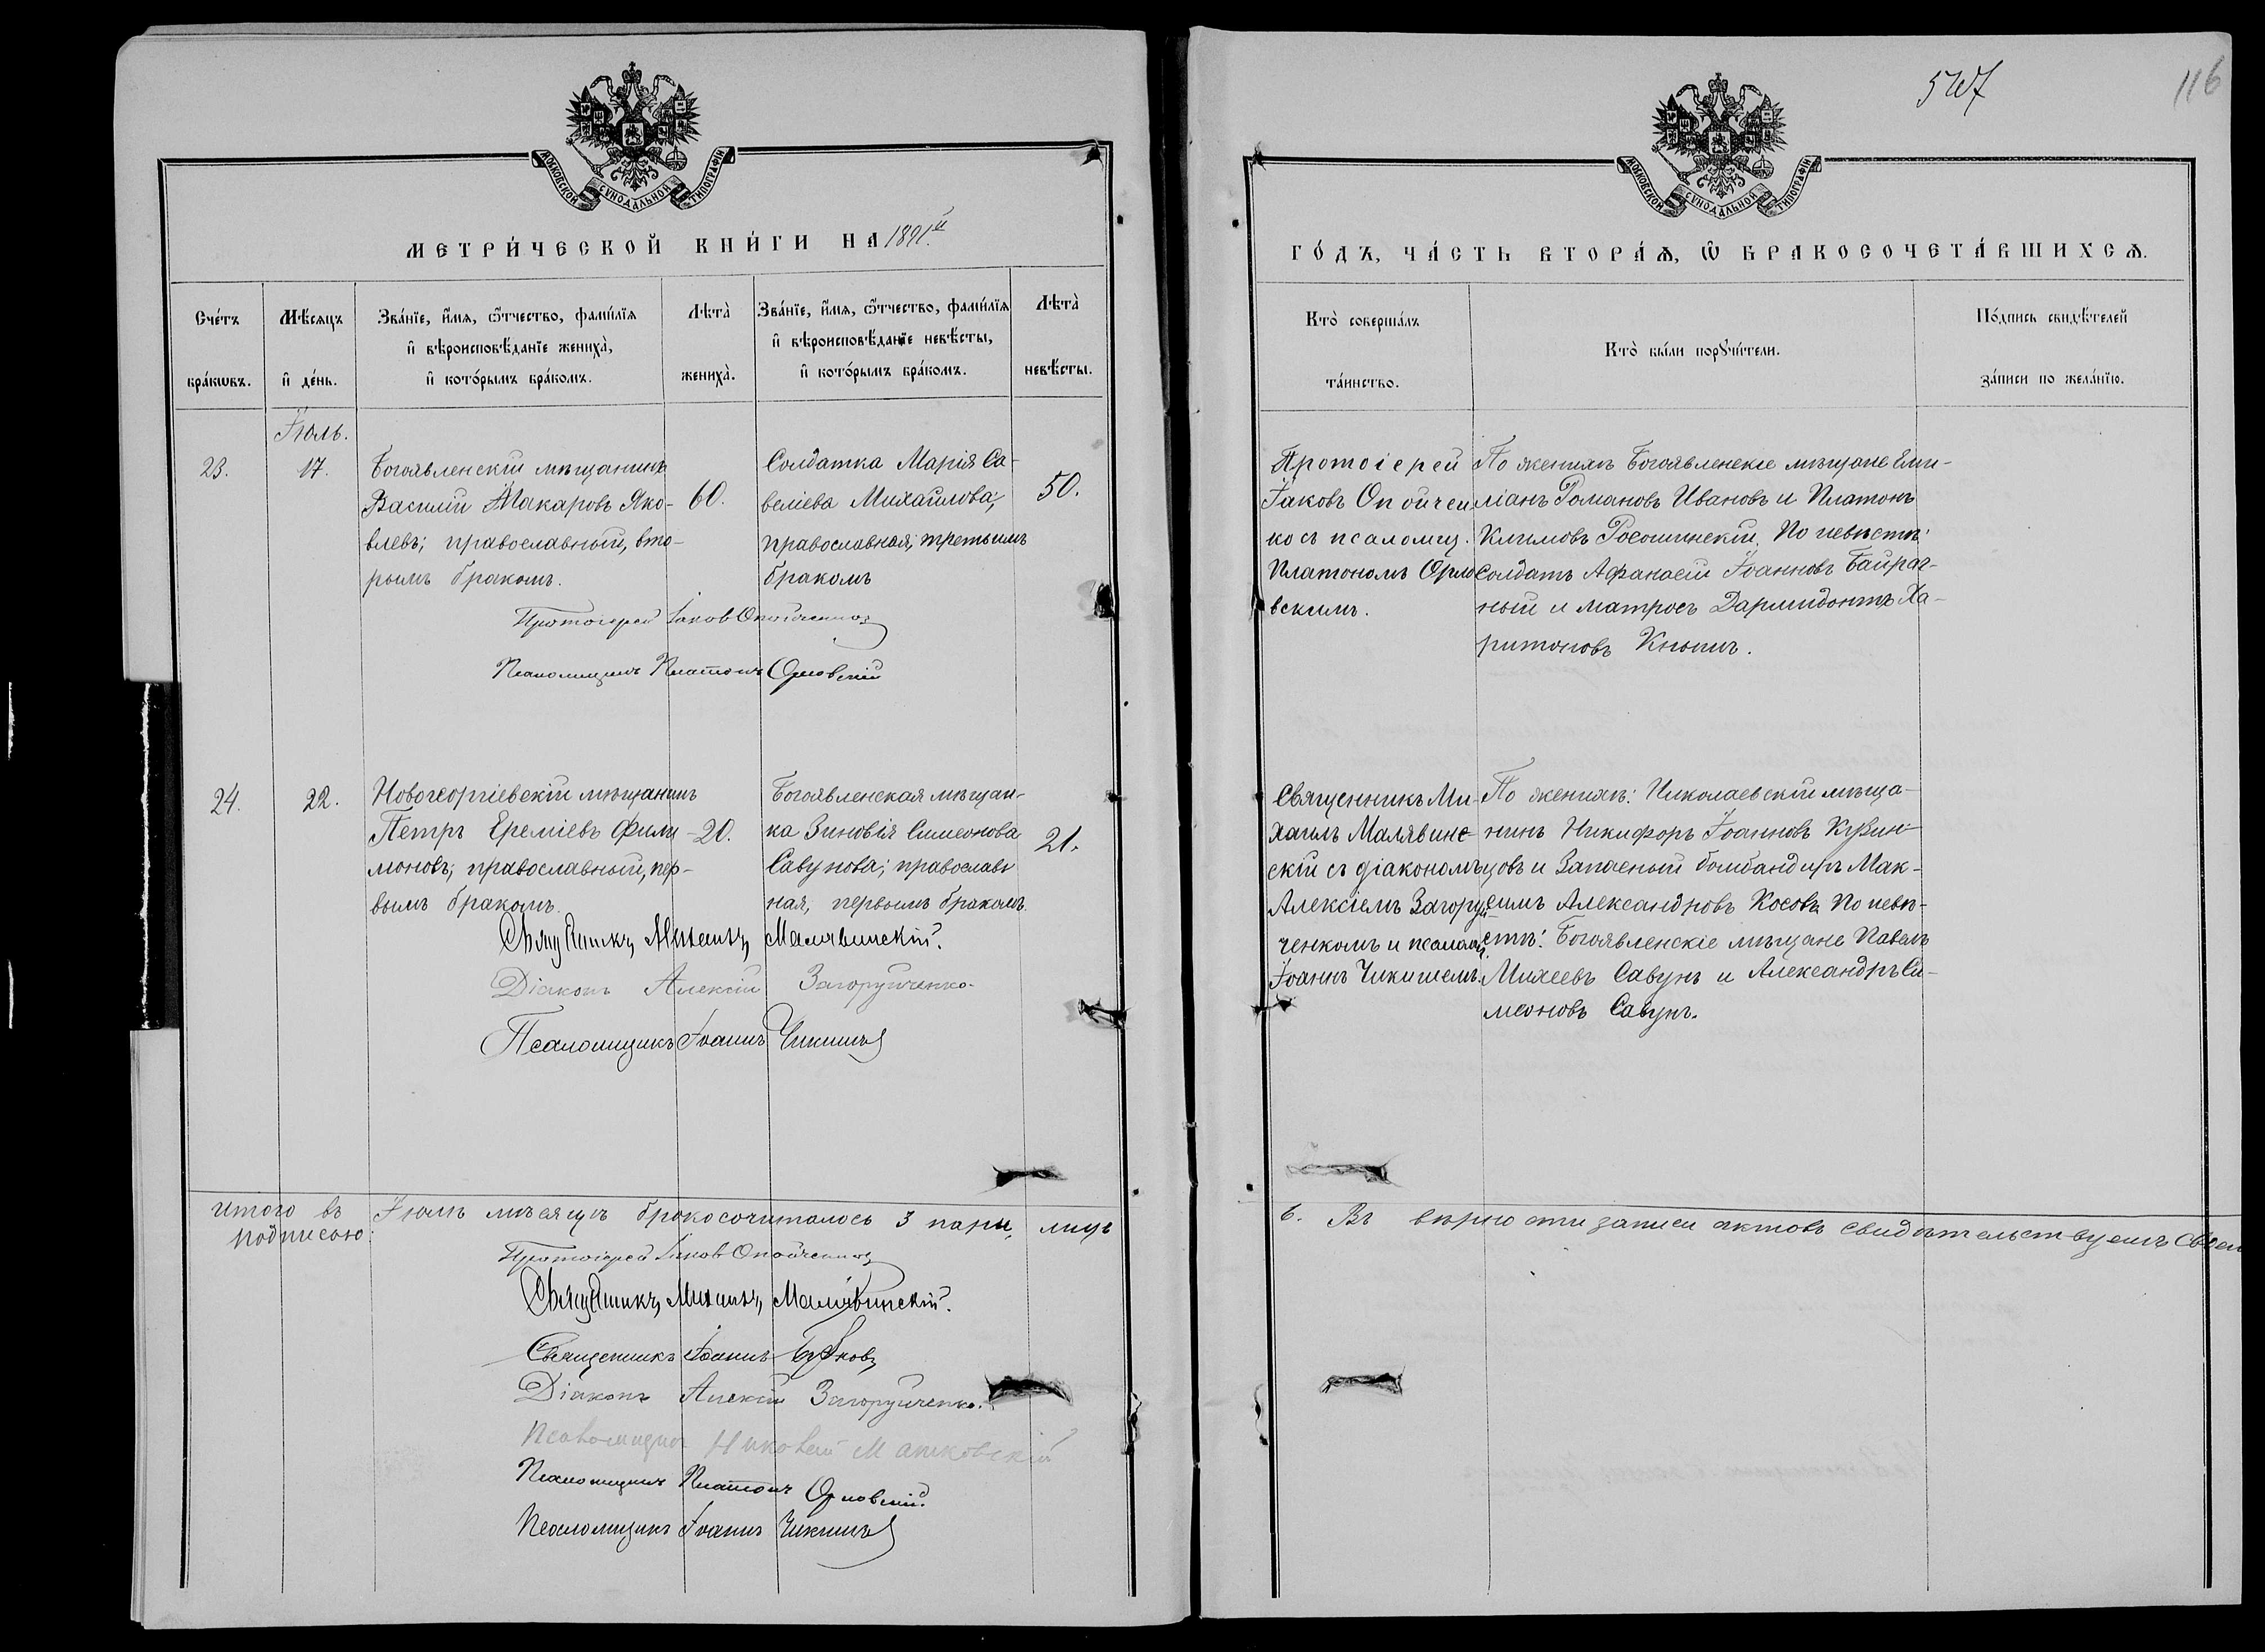 МОСКОВСКОЙ СУНОДАЛЬНОЙ ТИПОГРАФІИ
МЕТРИ́ЧЕСКОЙ КНИ́ГИ НА 1891.й
Сче́тъ бра́кѡвъ.
Мѣ́сяцъ и҆ де́нь.
Зва́нїе, и҆́мя, ѻ҆́тчество, фами́лїя
и҆ вѣроисповѣ́данїе жениха̀,
и҆ кото́рымъ бра́комъ.
Лѣта̀
жениха̀.
Зва́нїе, и҆́мя, ѻ҆́тчество, фами́лїя
и҆ вѣроисповѣ́данїе невѣ́сты,
и҆ кото́рымъ бра́комъ.
Лѣта̀
невѣ́сты.
Іюль.
23.
17.
Богоявленскій мѣщанинъ
Василій Макаровъ Яко-
влевъ; православный, вто-
рымъ бракомъ.
60.
Солдатка Марія Са-
веліева Михайлова;
православная; третьимъ
бракомъ
50.
Протоіерей Іаковъ Опойченко
Псаломщикъ Платонъ Орловскій
24.
22.
Новогеоргіевскій мѣщанинъ
Петръ Ереміевъ Фили-
моновъ; православный, пер-
вымъ бракомъ.
20.
Богоявленская мѣщан-
ка Зиновія Симеонова
Савунова; православ-
ная, первымъ бракомъ.
21.
Священникъ Михаилъ Малявинскій.
Діаконъ Алексій Загоруйченко.
Псаломщикъ Іоаннъ Чикишъ
Итого въ Іюлѣ мѣсяцѣ бракосочиталось 3 пары, лицъ
подписою:
Протоіерей Іаковъ Опойченко
Священникъ Михаилъ Малявинскій.
Священникъ Іоаннъ
Діаконъ Алексій Загоруйченко.
Псаломщикъ Николай Матковскій
Псаломщикъ Платонъ Орловскій.
Псаломщикъ Іоаннъ Чикишъ
116
МОСКОВСКОЙ СУНОДАЛЬНОЙ ТИПОГРАФІИ
ГО́ДЪ, ЧА́СТЬ ВТОРА́Ѧ, Ѽ БРАКОСОЧЕТА́ВШИХСѦ.
Кто̀ соверша́лъ
та́инство.
Кто̀ бы́ли порꙋчи́тели.
По́дпись свидѣ́телей
за́писи по жела́нїю.
Протоіерей
Іаковъ Опойчен
ко съ псаломщ.
Платономъ Орло
вскимъ.
По женихѣ Богоявленскіе мѣщане Еми-
ліанъ Романовъ Ивановъ и Платонъ
Климовъ Росошинскій. По невѣстѣ:
Солдатъ Афанасій Іоанновъ Байрач-
ный и матросъ Дармидонтъ Ха-
ритоновъ Кнышъ.
Священникъ Ми-
хаилъ Малявин-
скій съ діакономъ
Алексіемъ Загоруй
ченкомъ и псаломщ.
Іоаннъ Чикишемъ.
По женихѣ: Николаевскій мѣща-
нинъ Никифоръ Іоанновъ Кузин-
цовъ и Запасный бомбандиръ Мак-
симъ Александровъ Косовъ. По невѣ-
стѣ: Богоявленскіе мѣщане Павелъ
Михеевъ Савунъ и Александръ Си-
меоновъ Савунъ.
6. Въ вѣрности записи актовъ свидѣтельствуемъ своей